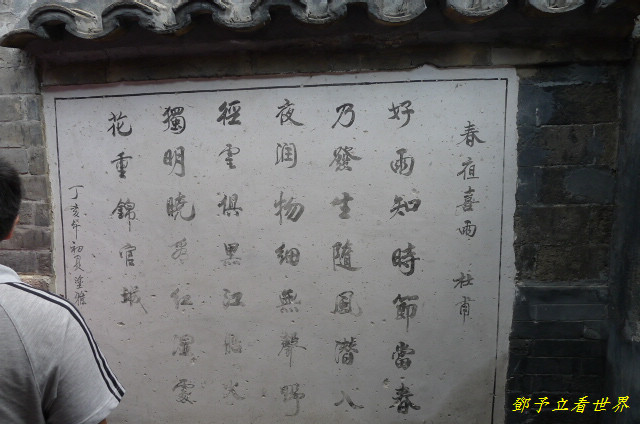 春夜喜雨 杜甫
好雨知時節當春
乃發生隨風潛入
夜润物細無聲野
徑雲俱黑江船火
獨明曉看红濕處
花重錦官城
丁亥年初夏
鄧予立看世界